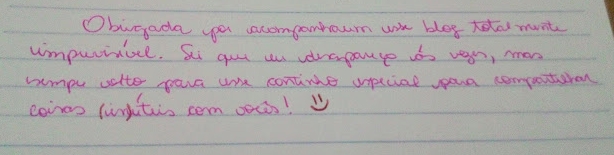 Obrigada por acompanharem esse blog totalmente
imprevisível. Sei que eu desapareço às vezes, mas
sempre volto para esse cantinho especial para compartilhar
coisas (in)úteis com vocês!